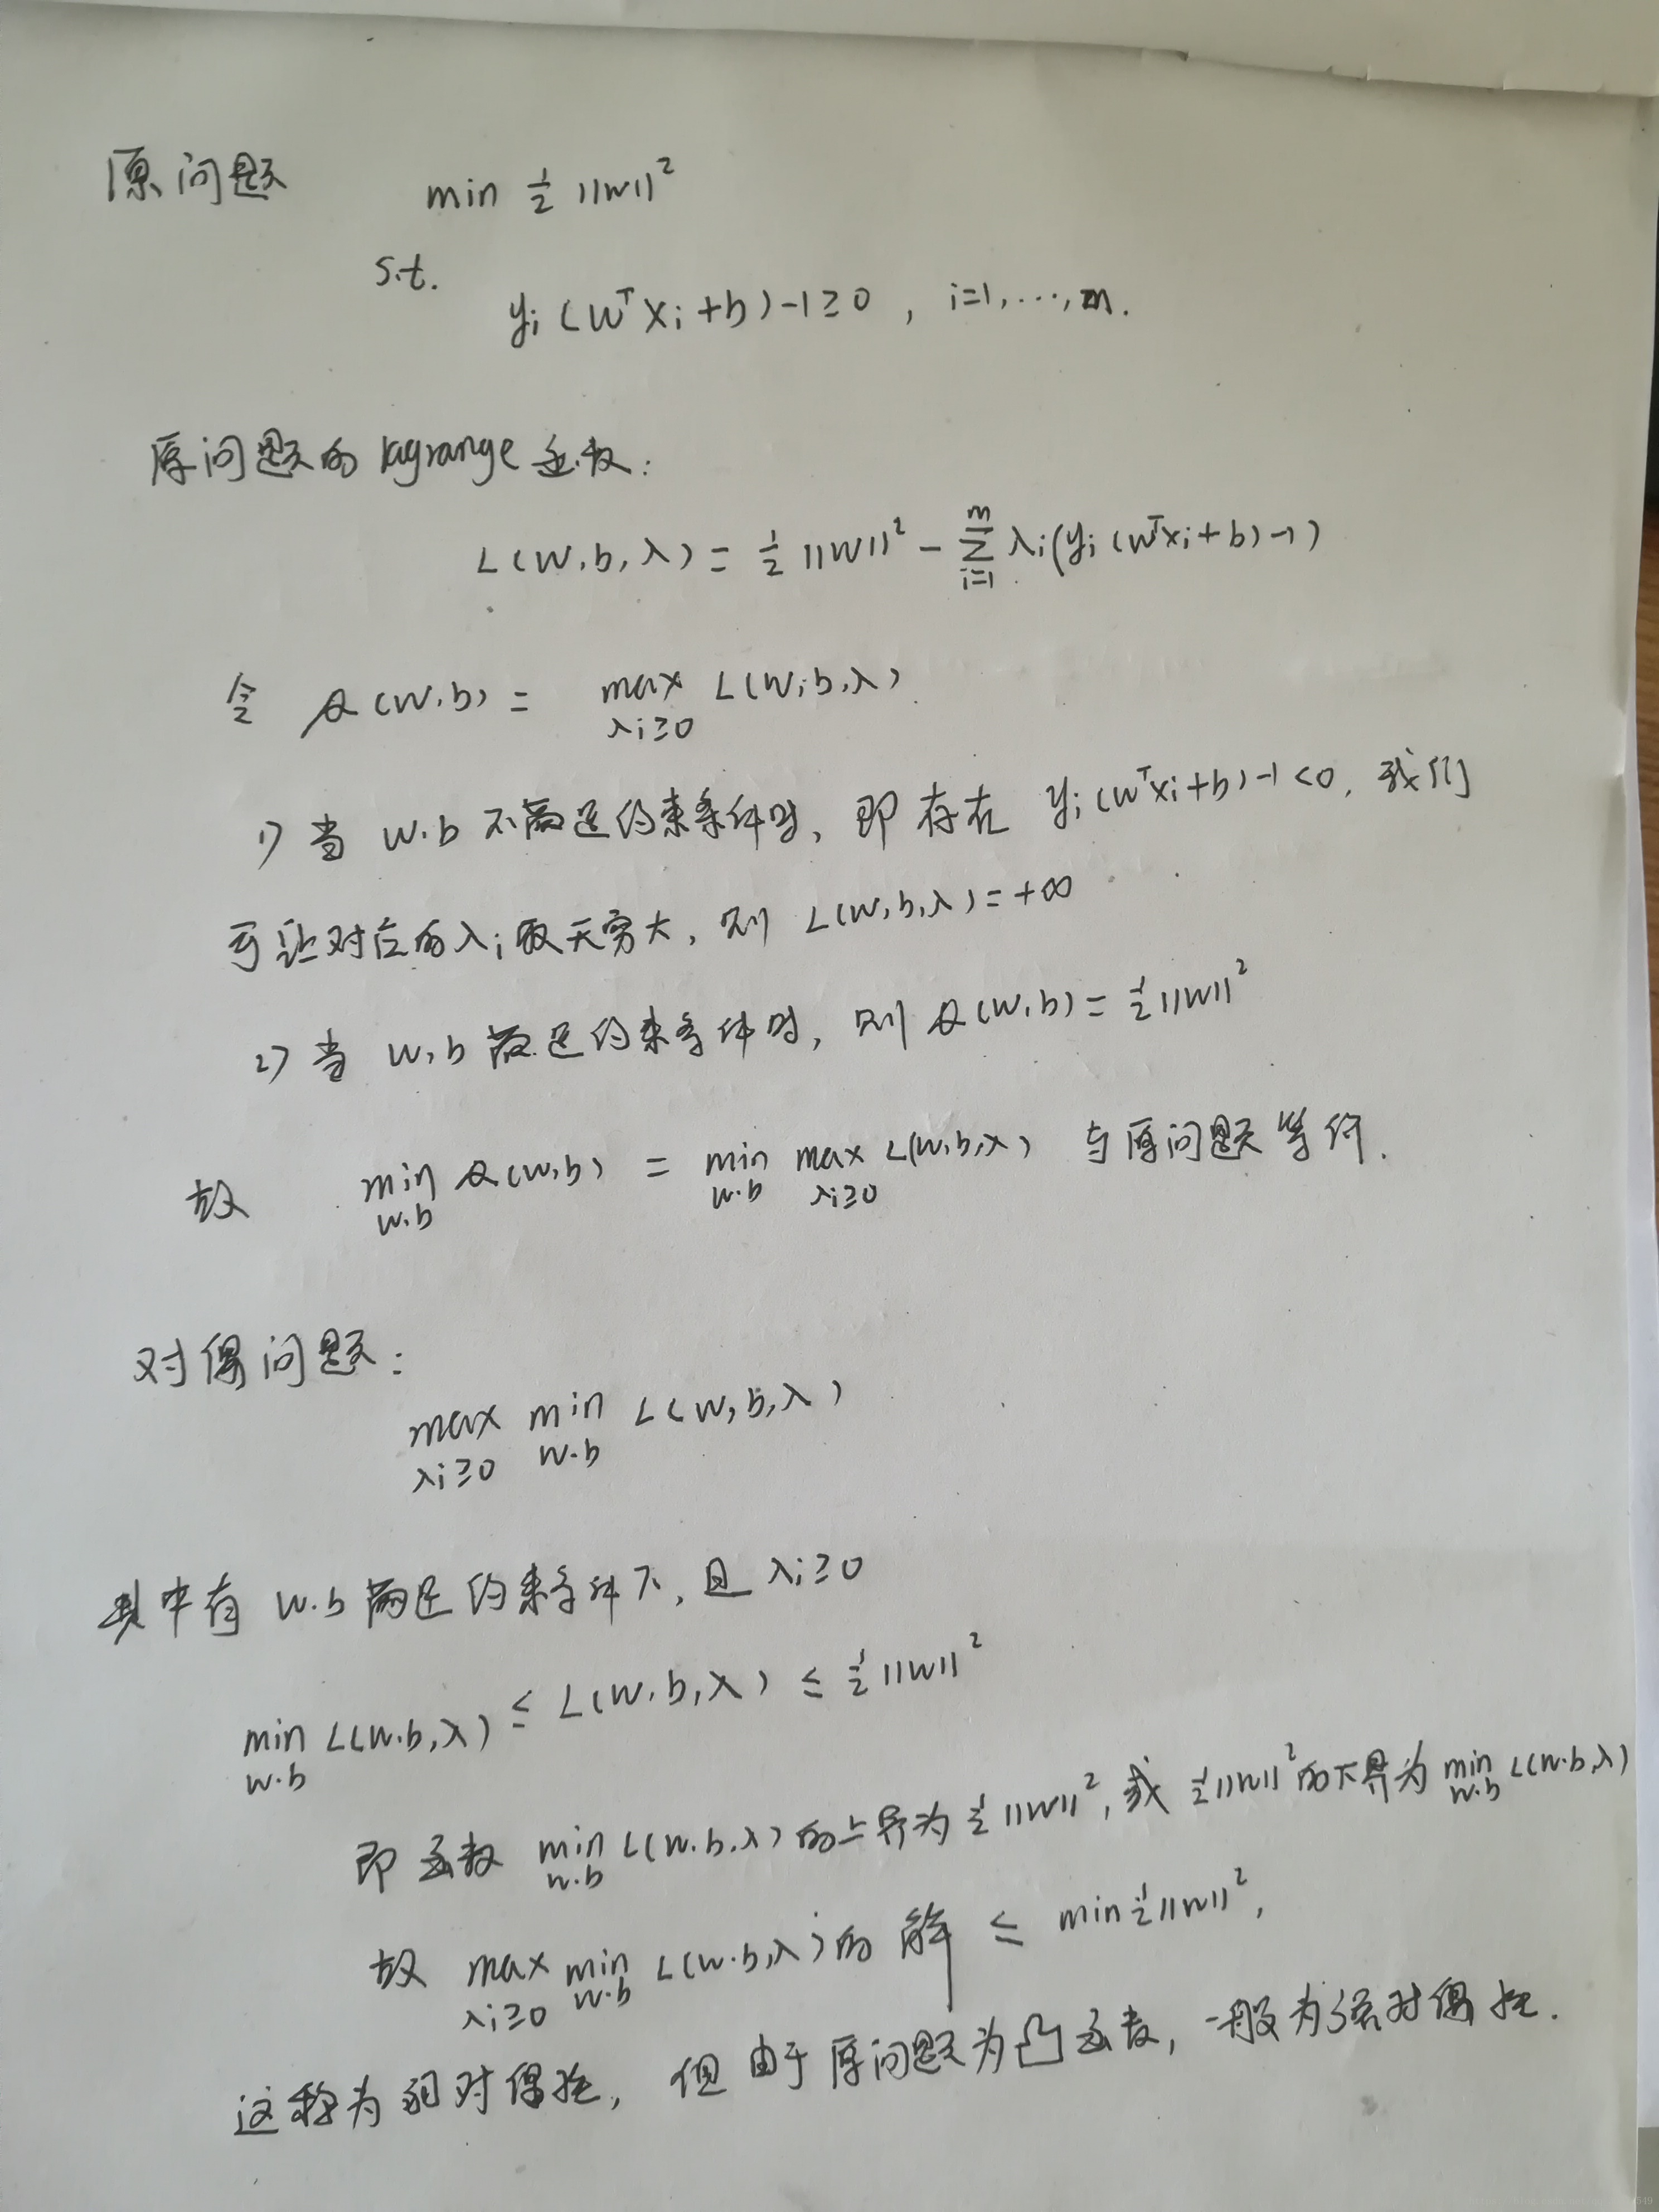 原问题 min ½ ||w||²
s.t.
yᵢ(wᵀxᵢ+b)-1≥0 , i=1,...,m.
原问题的lagrange函数:
L(w,b,λ) = ½ ||w||² - Σᵢ₌₁ᵐ λᵢ(yᵢ(wᵀxᵢ+b)-1)
令 Q(w,b) = max_{λᵢ≥0} L(w,b,λ)
1) 当 w,b 不满足约束条件时, 即存在 yᵢ(wᵀxᵢ+b)-1<0, 我们
可让对应的λᵢ取无穷大, 则 L(w,b,λ)=+∞
2) 当 w,b 满足约束条件时, 则 Q(w,b) = ½||w||²
故 min_{w,b} Q(w,b) = min_{w,b} max_{λᵢ≥0} L(w,b,λ) 与原问题等价.
对偶问题:
max_{λᵢ≥0} min_{w,b} L(w,b,λ)
其中有 w,b 满足约束条件下, 且 λᵢ≥0
min_{w,b} L(w,b,λ) ≤ L(w,b,λ) ≤ ½||w||²
即函数 min_{w,b} L(w,b,λ) 的上界为 ½||w||², 或 ½||w||² 的下界为 min_{w,b} L(w,b,λ)
故 max_{λᵢ≥0} min_{w,b} L(w,b,λ) 的解 ≤ min ½||w||²,
这称为弱对偶性, 但由于原问题为凸函数, 一般为强对偶性.